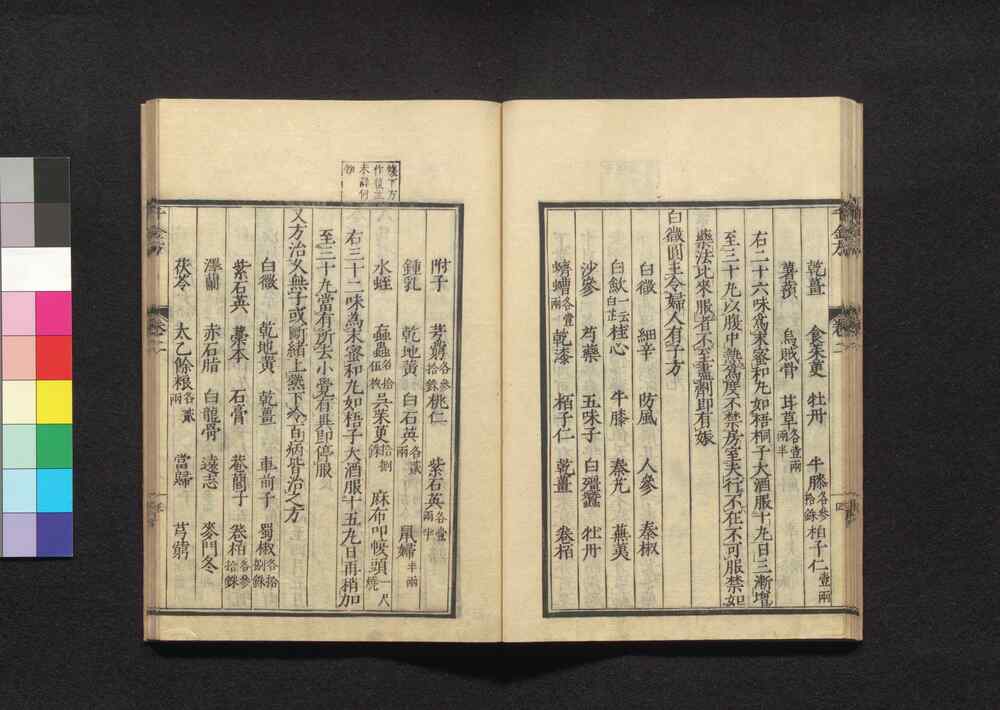 乾薑 食茱萸 牡丹 牛膝各參拾銖 柏子仁壹兩
薯蕷 烏賊骨 甘草各壹兩兩半
右二十六味為末蜜和丸如梧桐子大酒服十九日三漸增
至三十九以腹中熱為度不禁房室夫行不在不可服禁如
藥法比來服者不至盡劑即有娠
白薇圓主令婦人有子方
白薇 細辛 防風 人參 秦椒
白歛一云白芷 桂心 牛膝 秦艽 蕪荑
沙參 芍藥 五味子 白殭蠶 牡丹
蠐螬各壹兩 乾漆 栢子仁 乾薑 卷栢
附子 芎藭各參拾銖 桃仁 紫石英各壹兩半
鍾乳 乾地黃 白石英各貳兩 鼠婦半兩
水蛭 蝱蟲各拾伍枚 吳茱萸拾捌銖 麻布叩幞頭一尺燒
右三十二味為末蜜和丸如梧子大酒服十五九日再稍加
至三十九當有所去小覺有異即停服
又方治久無子或斷緒上熱下冷百病皆治之方
白薇 乾地黃 乾薑 車前子 蜀椒各拾捌銖
紫石英 藁本 石膏 菴䕡子 卷栢各參拾銖
澤蘭 赤石脂 白龍骨 遠志 麥門冬
茯苓 太乙餘粮各貳兩 當歸 芎藭
千金方
卷二